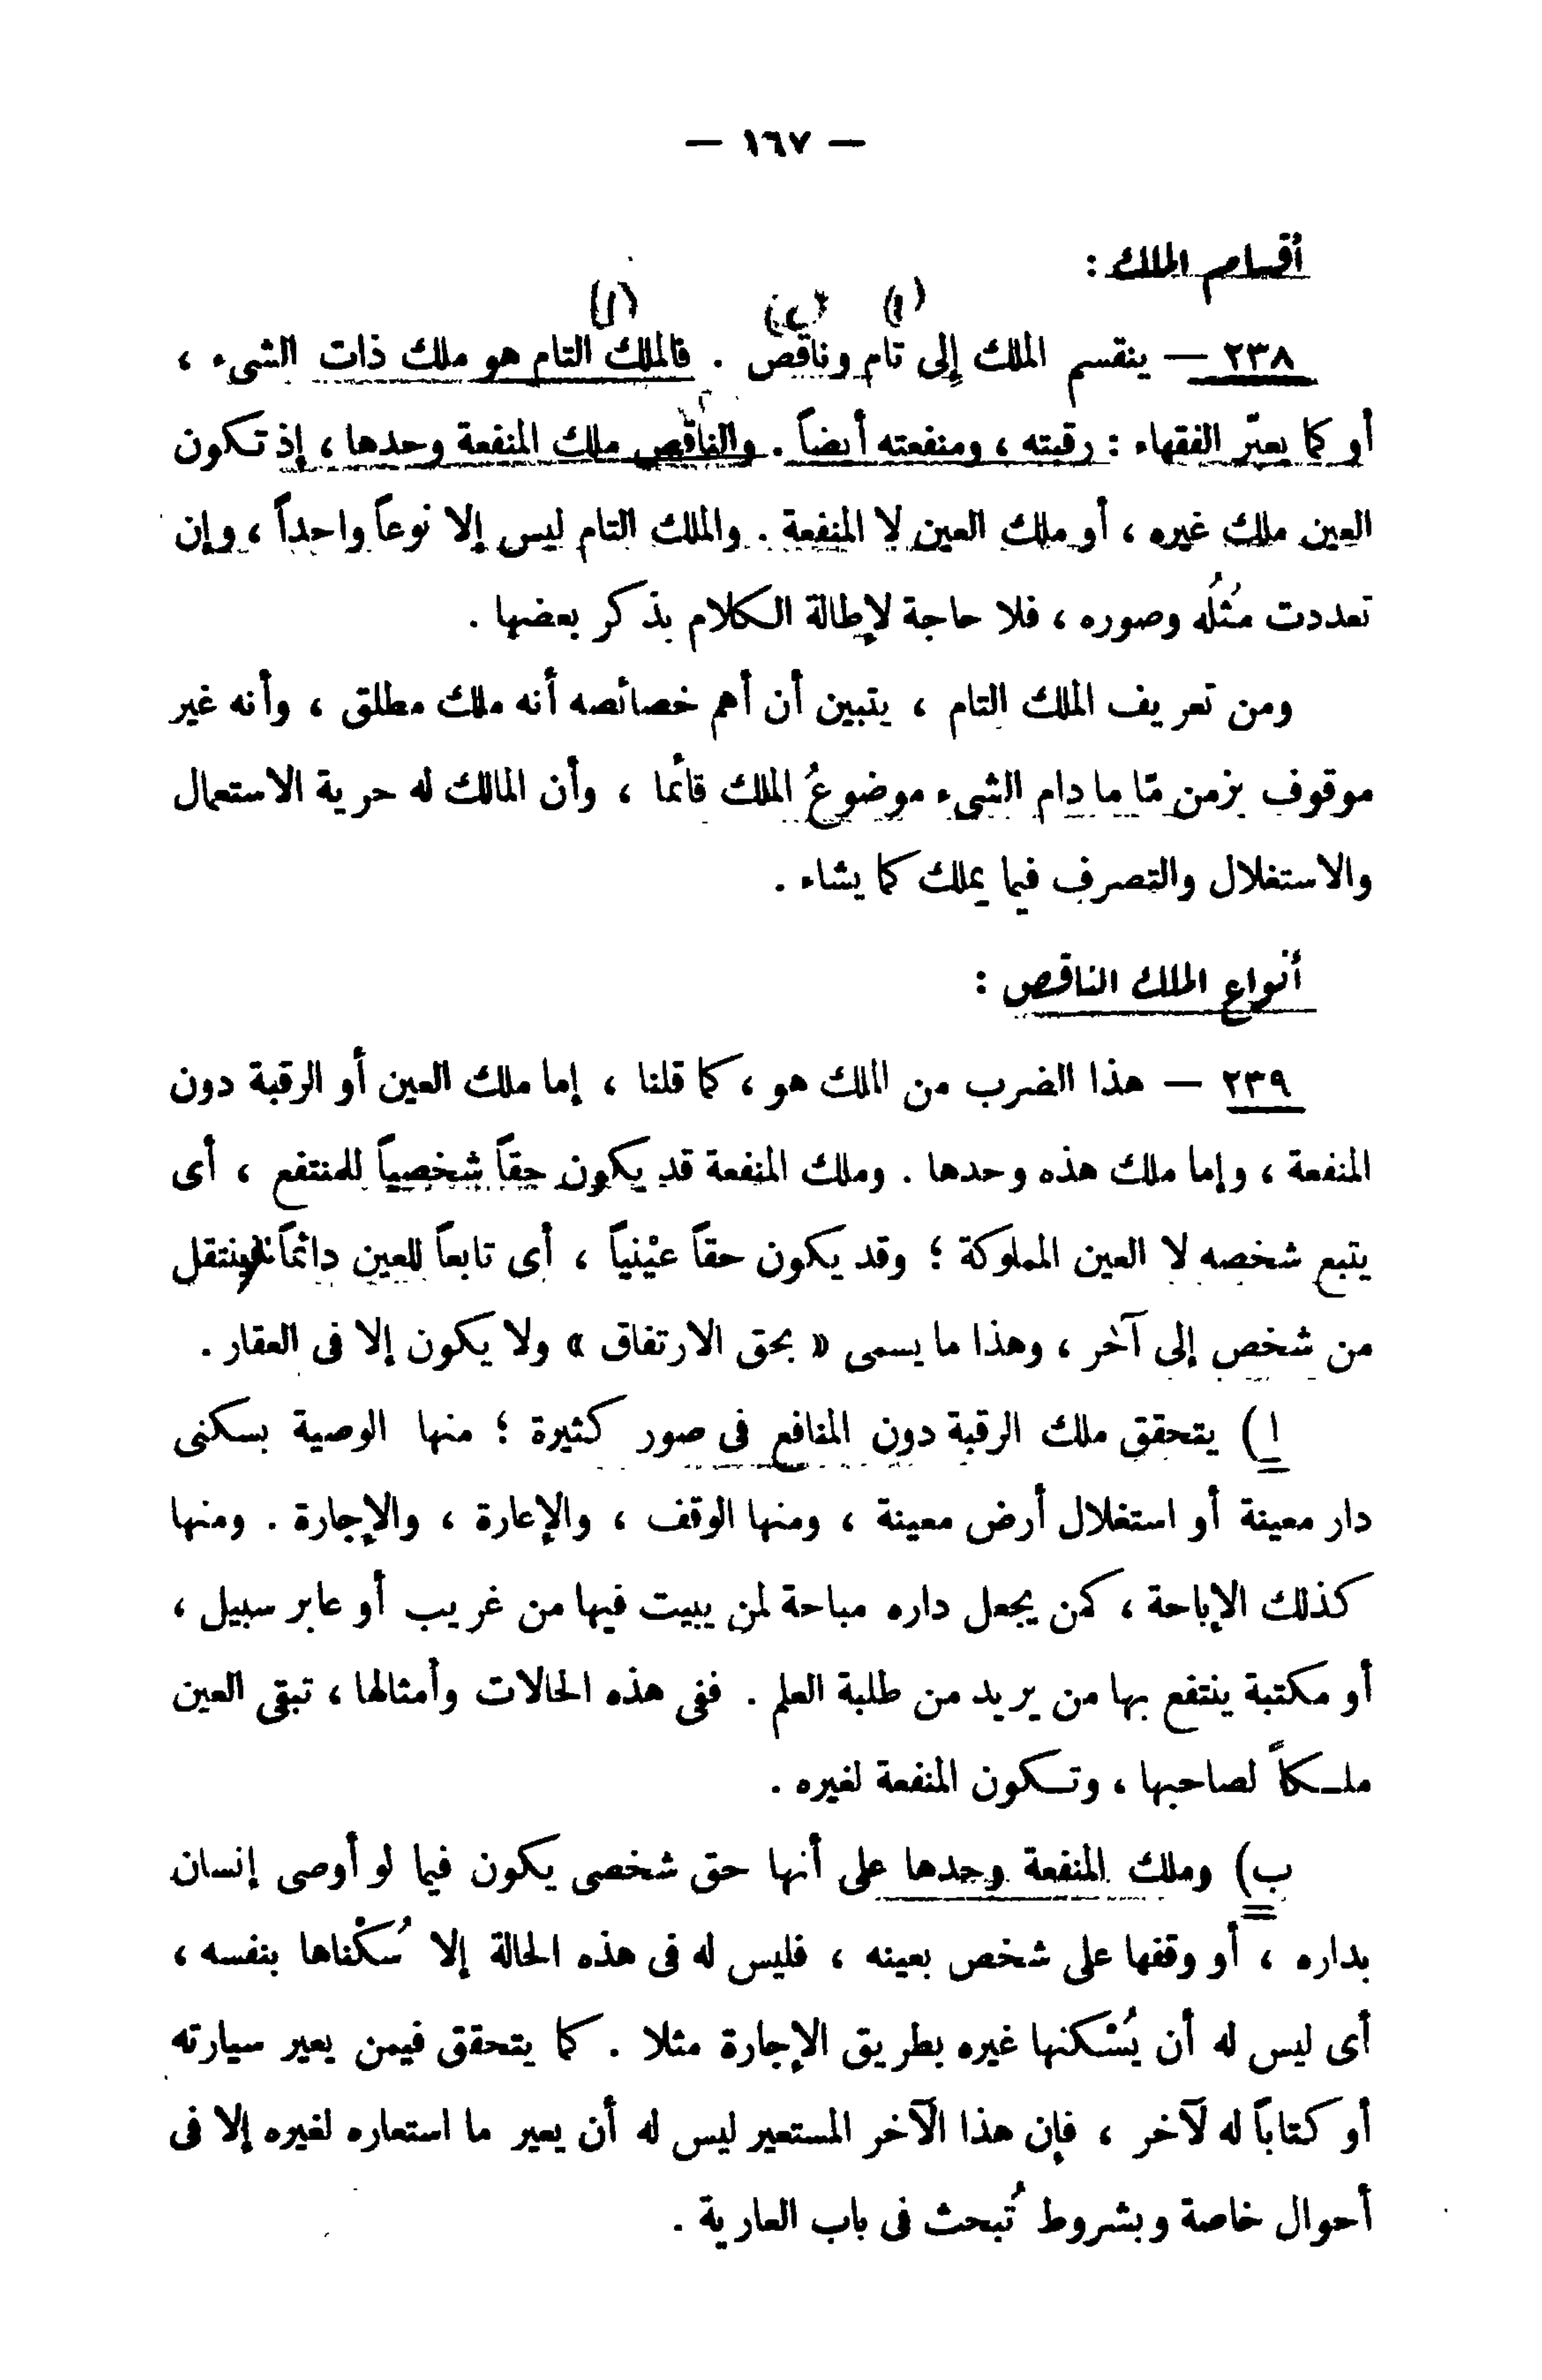 — ١٦٧ —
أقسام الملك :
(١) (٢) (١)
٢٣٨ — ينقسم الملك إلى تام وناقص . فالملك التام هو ملك ذات الشىء ،
أو كما يعبّر الفقهاء : رقبته ، ومنفعته أيضاً . والناقص ملك المنفعة وحدها ، إذ تكون
العين ملك غيره ، أو ملك العين لا المنفعة . والملك التام ليس إلا نوعاً واحداً ، وإن
تعددت مُثُلُه وصوره ، فلا حاجة لإطالة الكلام بذكر بعضها .
ومن تعريف الملك التام ، يتبين أن أهم خصائصه أنه ملك مطلق ، وأنه غير
موقوف بزمن مّا ما دام الشىء موضوعُ الملك قائما ، وأن المالك له حرية الاستعمال
والاستغلال والتصرف فيما يملك كما يشاء .
أنواع الملك الناقص :
٢٣٩ — هذا الضرب من الملك هو ، كما قلنا ، إما ملك العين أو الرقبة دون
المنفعة ، وإما ملك هذه وحدها . وملك المنفعة قد يكون حقاً شخصياً للمنتفع ، أى
يتبع شخصه لا العين المملوكة ؛ وقد يكون حقاً عيْنياً ، أى تابعاً للعين دائماً فينتقل
من شخص إلى آخر ، وهذا ما يسمى « بحق الارتفاق » ولا يكون إلا فى العقار .
ا) يتحقق ملك الرقبة دون المنافع فى صور كثيرة ؛ منها الوصية بسكنى
دار معينة أو استغلال أرض معينة ، ومنها الوقف ، والإعارة ، والإجارة . ومنها
كذلك الإباحة ، كمن يجعل داره مباحة لمن يبيت فيها من غريب أو عابر سبيل ،
أو مكتبة ينتفع بها من يريد من طلبة العلم . ففى هذه الحالات وأمثالها ، تبقى العين
ملـكاً لصاحبها ، وتـكون المنفعة لغيره .
ب) وملك المنفعة وحدها على أنها حق شخصى يكون فيما لو أوصى إنسان
بداره ، أو وقفها على شخص بعينه ، فليس له فى هذه الحالة إلا سُكْناها بنفسه ،
أى ليس له أن يُسْكنها غيره بطريق الإجارة مثلا . كما يتحقق فيمن يعير سيارته
أو كتاباً له لآخر ، فإن هذا الآخر المستعير ليس له أن يعير ما استعاره لغيره إلا فى
أحوال خاصة وبشروط تُبحث فى باب العارية .